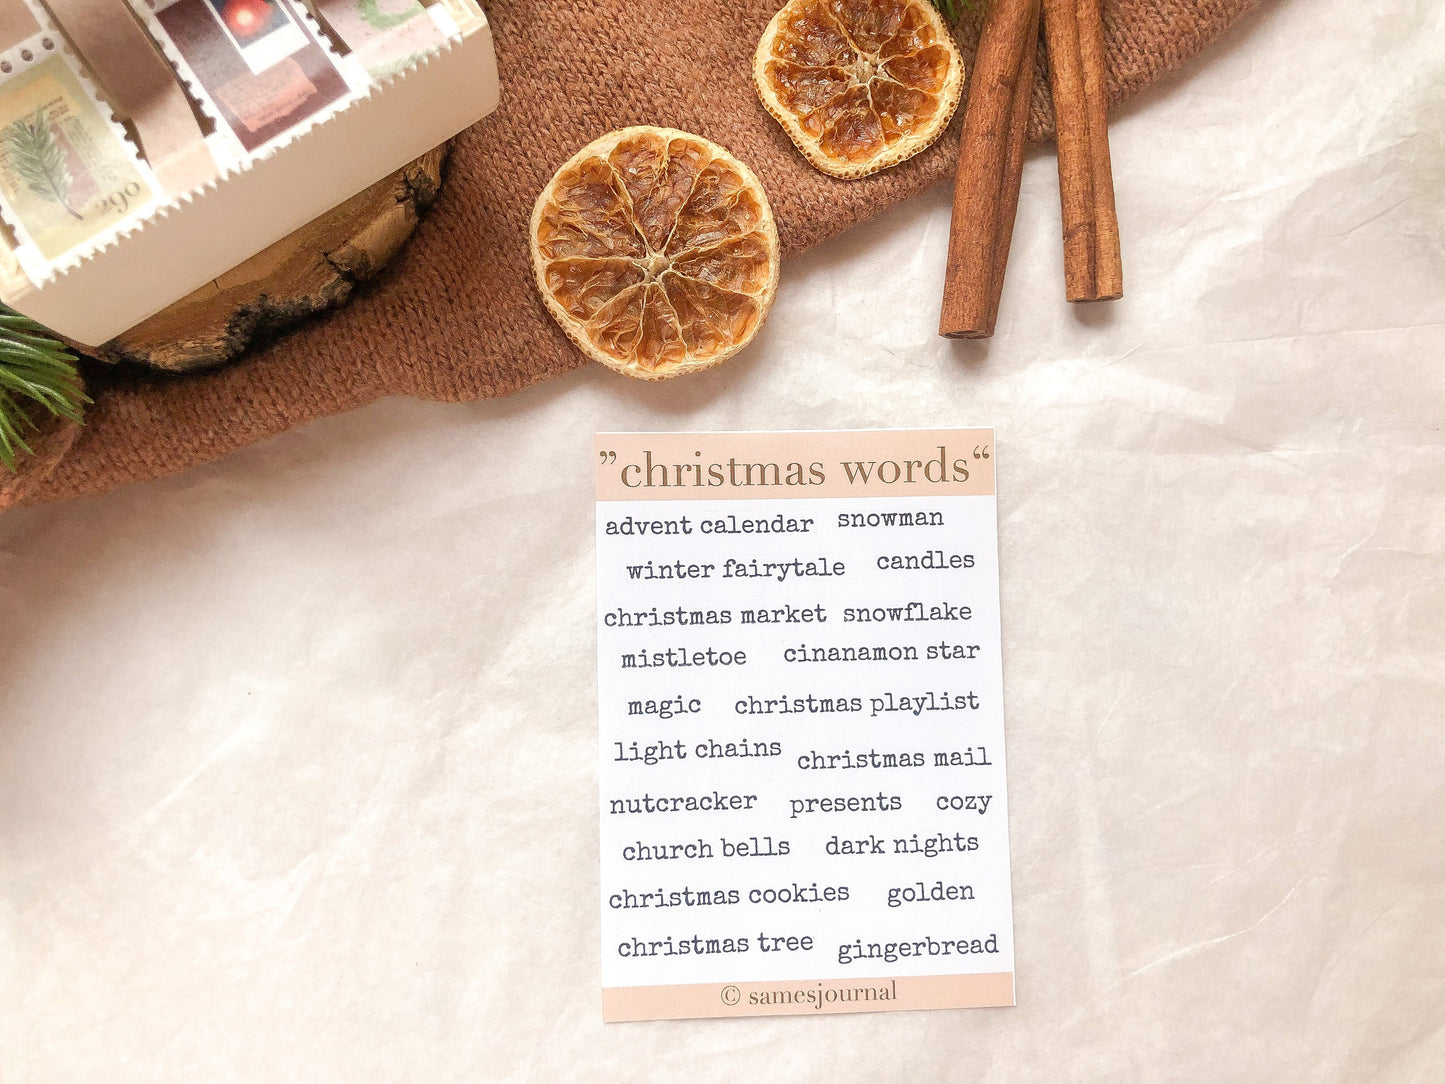 260
”christmas words“
advent calendar snowman
winter fairytale candles
christmas market snowflake
mistletoe cinanamon star
magic christmas playlist
light chains christmas mail
nutcracker presents cozy
church bells dark nights
christmas cookies golden
christmas tree gingerbread
© samesjournal